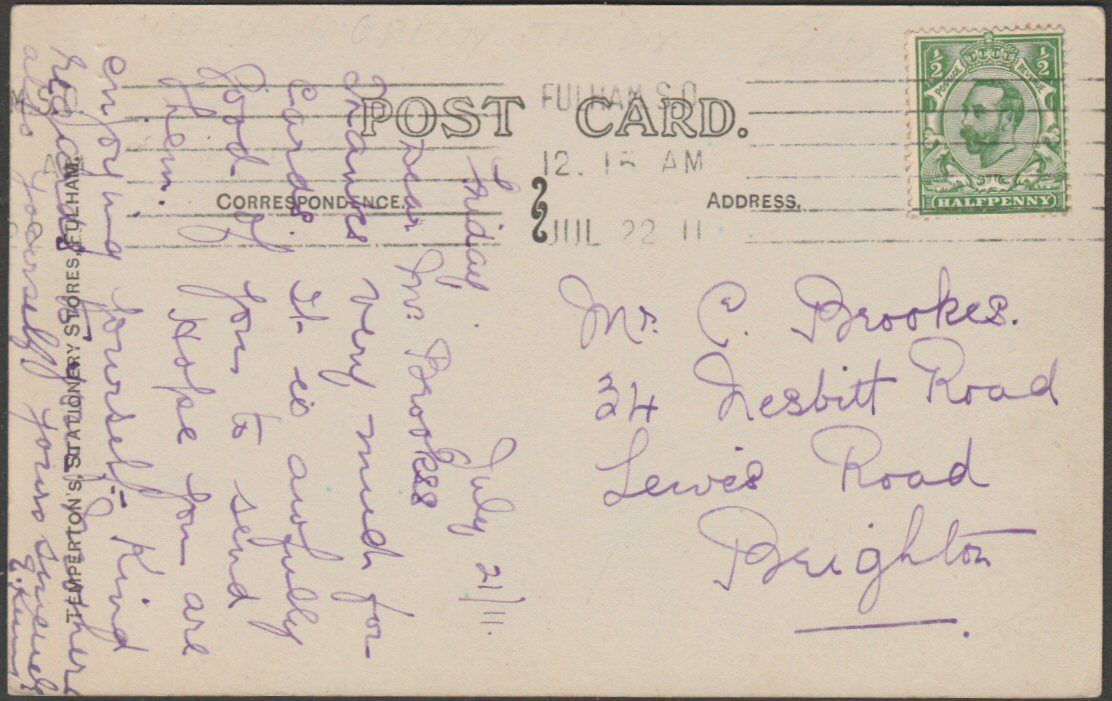 POST CARD.
FULHAM S.O
12. 15 AM
JUL 22 11
CORRESPONDENCE.
ADDRESS.
½ ½
POSTAGE REVENUE
HALFPENNY
TEMPERTON'S, STATIONERY STORES, FULHAM.
Friday. July 21/11.
Dear Mr. Brookes
Thanks very much for
cards. It is awfully
good of you to send
them. Hope you are
enjoying yourself. Kind
regards to
also yourself yours sincerely
Mr. C. Brookes.
34 Nesbitt Road
Lewes Road
Brighton